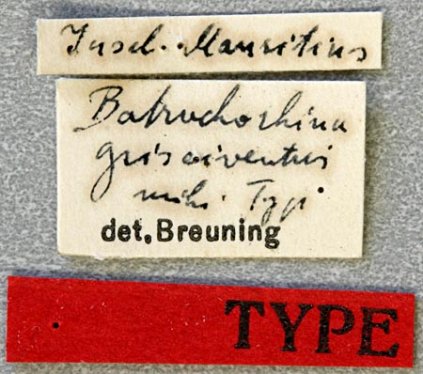 Insel. Mauritius
Batrachorhina
griseiventris
mihi. Typ
det. Breuning
TYPE